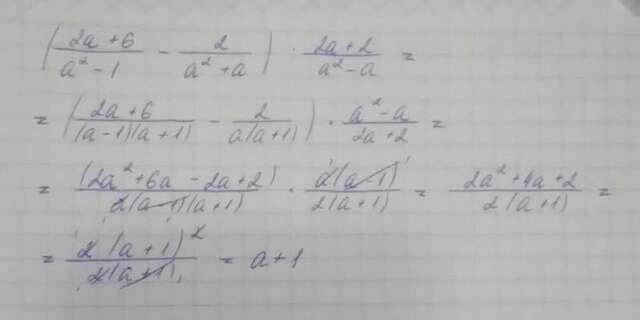 (2a+6/a²-1 - 2/a²+a) · 2a+2/a²-a =
= (2a+6/(a-1)(a+1) - 2/a(a+1)) · a²-a/2a+2 =
= (2a²+6a-2a+2)/a(a-1)(a+1) · a(a-1)/2(a+1) = 2a²+4a+2/2(a+1) =
= 2(a+1)²/2(a+1) = a+1